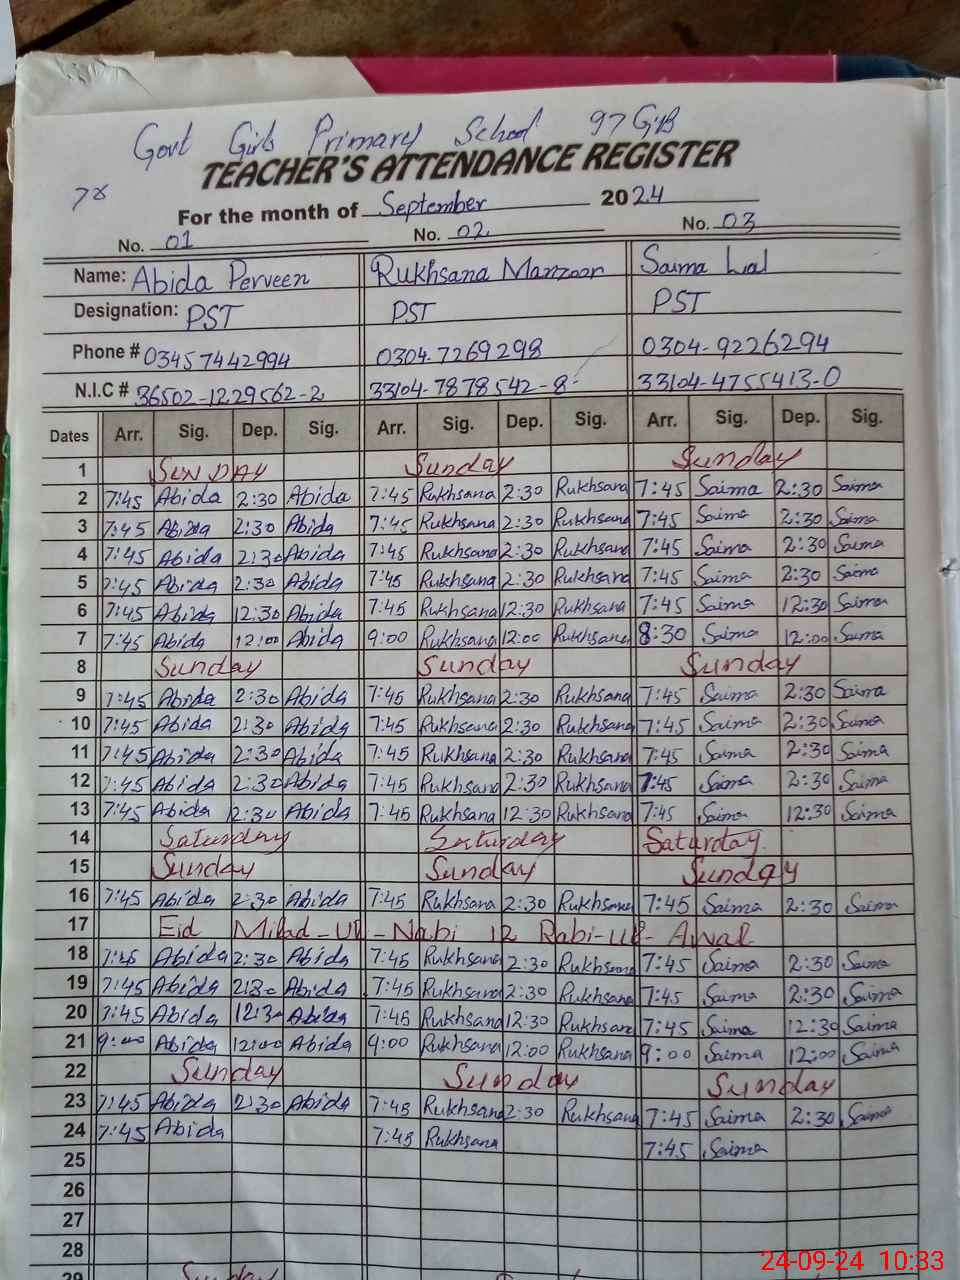 Govt Girls Primary School 97 GB
TEACHER'S ATTENDANCE REGISTER
For the month of September 2024
No. 01 No. 02 No. 03
Name: Abida Perveen Rukhsana Manzoor Saima Lal
Designation: PST PST PST
Phone # 03457442994 0304-7269298 0304-9226294
N.I.C # 36502-1229562-2 33104-7878542-8 33104-4755413-0
Dates Arr. Sig. Dep. Sig. Arr. Sig. Dep. Sig. Arr. Sig. Dep. Sig.
1 SUNDAY Sunday Sunday
2 7:45 Abida 2:30 Abida 7:45 Rukhsana 2:30 Rukhsana 7:45 Saima 2:30 Saima
3 7:45 Abida 2:30 Abida 7:45 Rukhsana 2:30 Rukhsana 7:45 Saima 2:30 Saima
4 7:45 Abida 2:30 Abida 7:45 Rukhsana 2:30 Rukhsana 7:45 Saima 2:30 Saima
5 7:45 Abida 2:30 Abida 7:45 Rukhsana 2:30 Rukhsana 7:45 Saima 2:30 Saima
6 7:45 Abida 12:30 Abida 7:45 Rukhsana 12:30 Rukhsana 7:45 Saima 12:30 Saima
7 7:45 Abida 12:00 Abida 9:00 Rukhsana 12:00 Rukhsana 8:30 Saima 12:00 Saima
8 Sunday Sunday Sunday
9 7:45 Abida 2:30 Abida 7:45 Rukhsana 2:30 Rukhsana 7:45 Saima 2:30 Saima
10 7:45 Abida 2:30 Abida 7:45 Rukhsana 2:30 Rukhsana 7:45 Saima 2:30 Saima
11 7:45 Abida 2:30 Abida 7:45 Rukhsana 2:30 Rukhsana 7:45 Saima 2:30 Saima
12 7:45 Abida 2:30 Abida 7:45 Rukhsana 2:30 Rukhsana 7:45 Saima 2:30 Saima
13 7:45 Abida 12:30 Abida 7:45 Rukhsana 12:30 Rukhsana 7:45 Saima 12:30 Saima
14 Saturday Saturday Saturday
15 Sunday Sunday Sunday
16 7:45 Abida 2:30 Abida 7:45 Rukhsana 2:30 Rukhsana 7:45 Saima 2:30 Saima
17 Eid Milad-Ul-Nabi 12 Rabi-ul-Awal
18 7:45 Abida 2:30 Abida 7:45 Rukhsana 2:30 Rukhsana 7:45 Saima 2:30 Saima
19 7:45 Abida 2:30 Abida 7:45 Rukhsana 2:30 Rukhsana 7:45 Saima 2:30 Saima
20 7:45 Abida 12:30 Abida 7:45 Rukhsana 12:30 Rukhsana 7:45 Saima 12:30 Saima
21 9:00 Abida 12:00 Abida 9:00 Rukhsana 12:00 Rukhsana 9:00 Saima 12:00 Saima
22 Sunday Sunday Sunday
23 7:45 Abida 2:30 Abida 7:45 Rukhsana 2:30 Rukhsana 7:45 Saima 2:30 Saima
24 7:45 Abida 7:45 Rukhsana 7:45 Saima
25
26
27
28
29
24-09-24 10:33